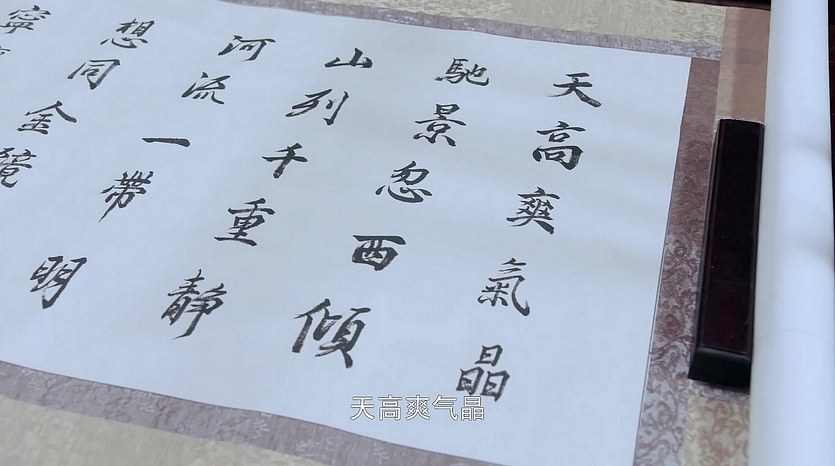 天高爽氣晶
馳景忽西傾
山列千重靜
河流一帶明
想同金鏡
寧
天高爽气晶